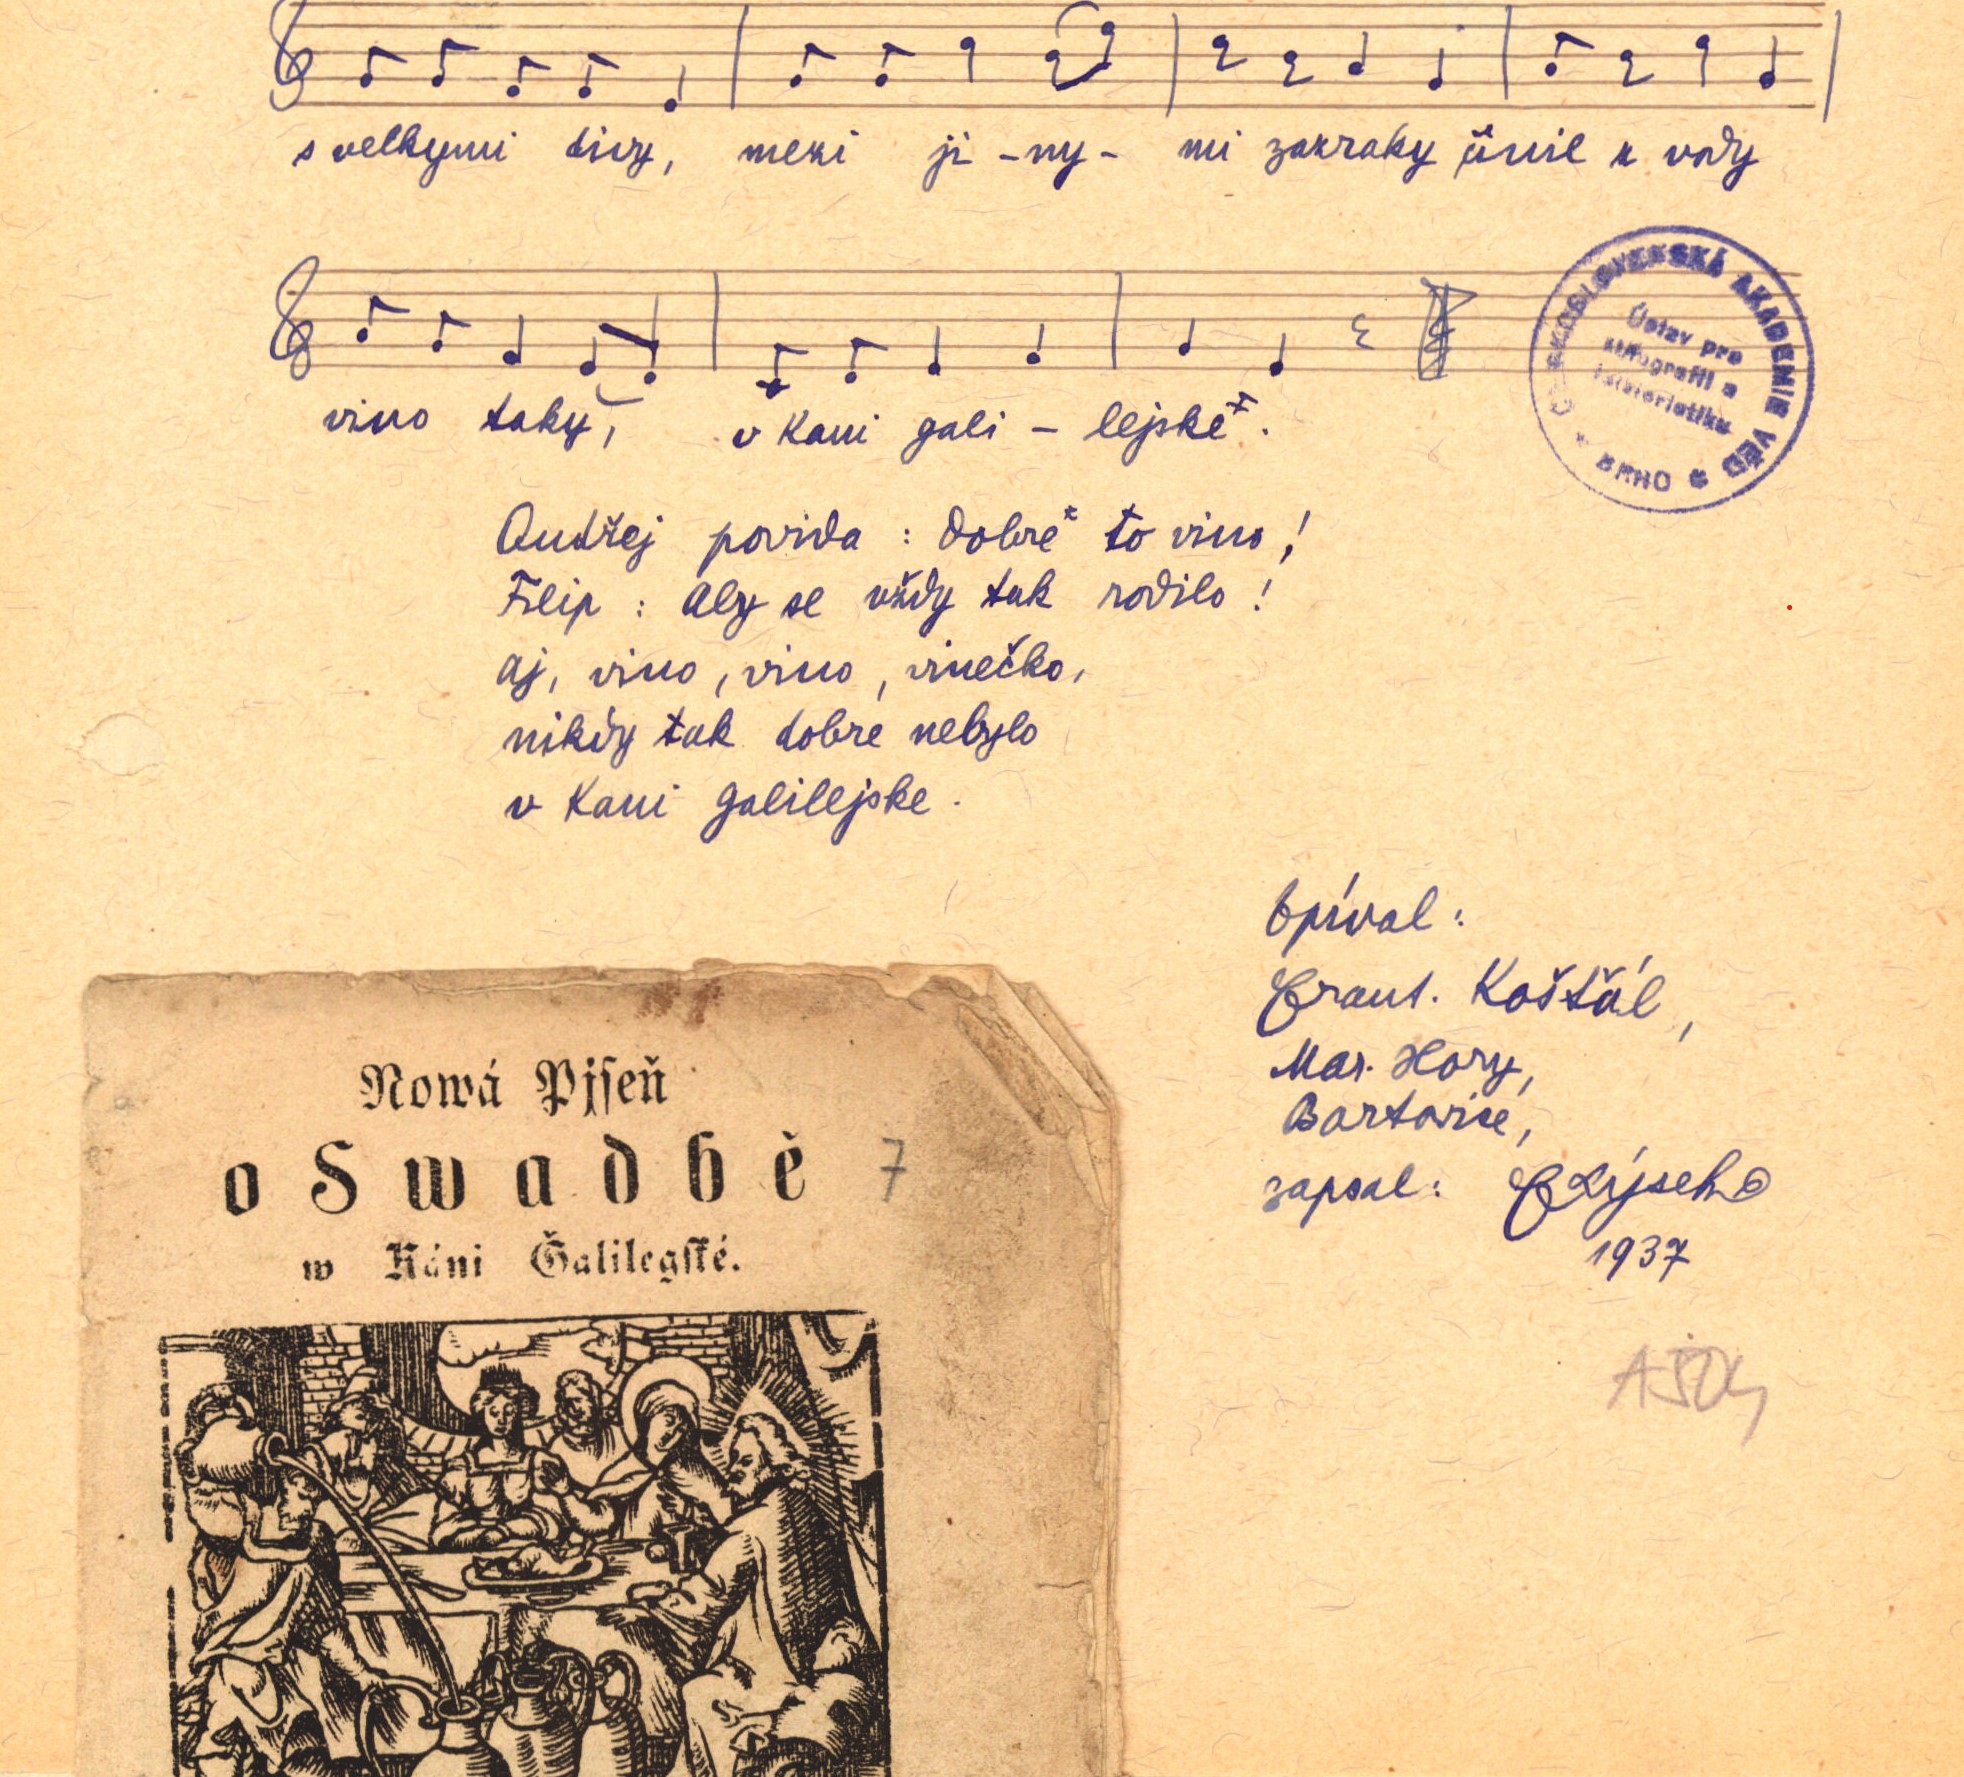 s velkymi divy, mezi ji - ny - mi zazraky učinil z vody
vino taky, v Kani gali - lejske.
ČESKOSLOVENSKÁ AKADEMIE VĚD
Ústav pro
etnografii a
folkloristiku
BRNO
Ondřej povida : dobre to vino !
Filip : Aby se vždy tak rodilo !
aj, vino, vino, vinečko,
nikdy tak dobre nebylo
v Kani galilejske.
Zpíval :
Frant. Košťál,
Mar. Hory,
Bartovice,
zapsal :
1937
Nowá Pjseň
o Swadbě
7
w Káni Galilegské.